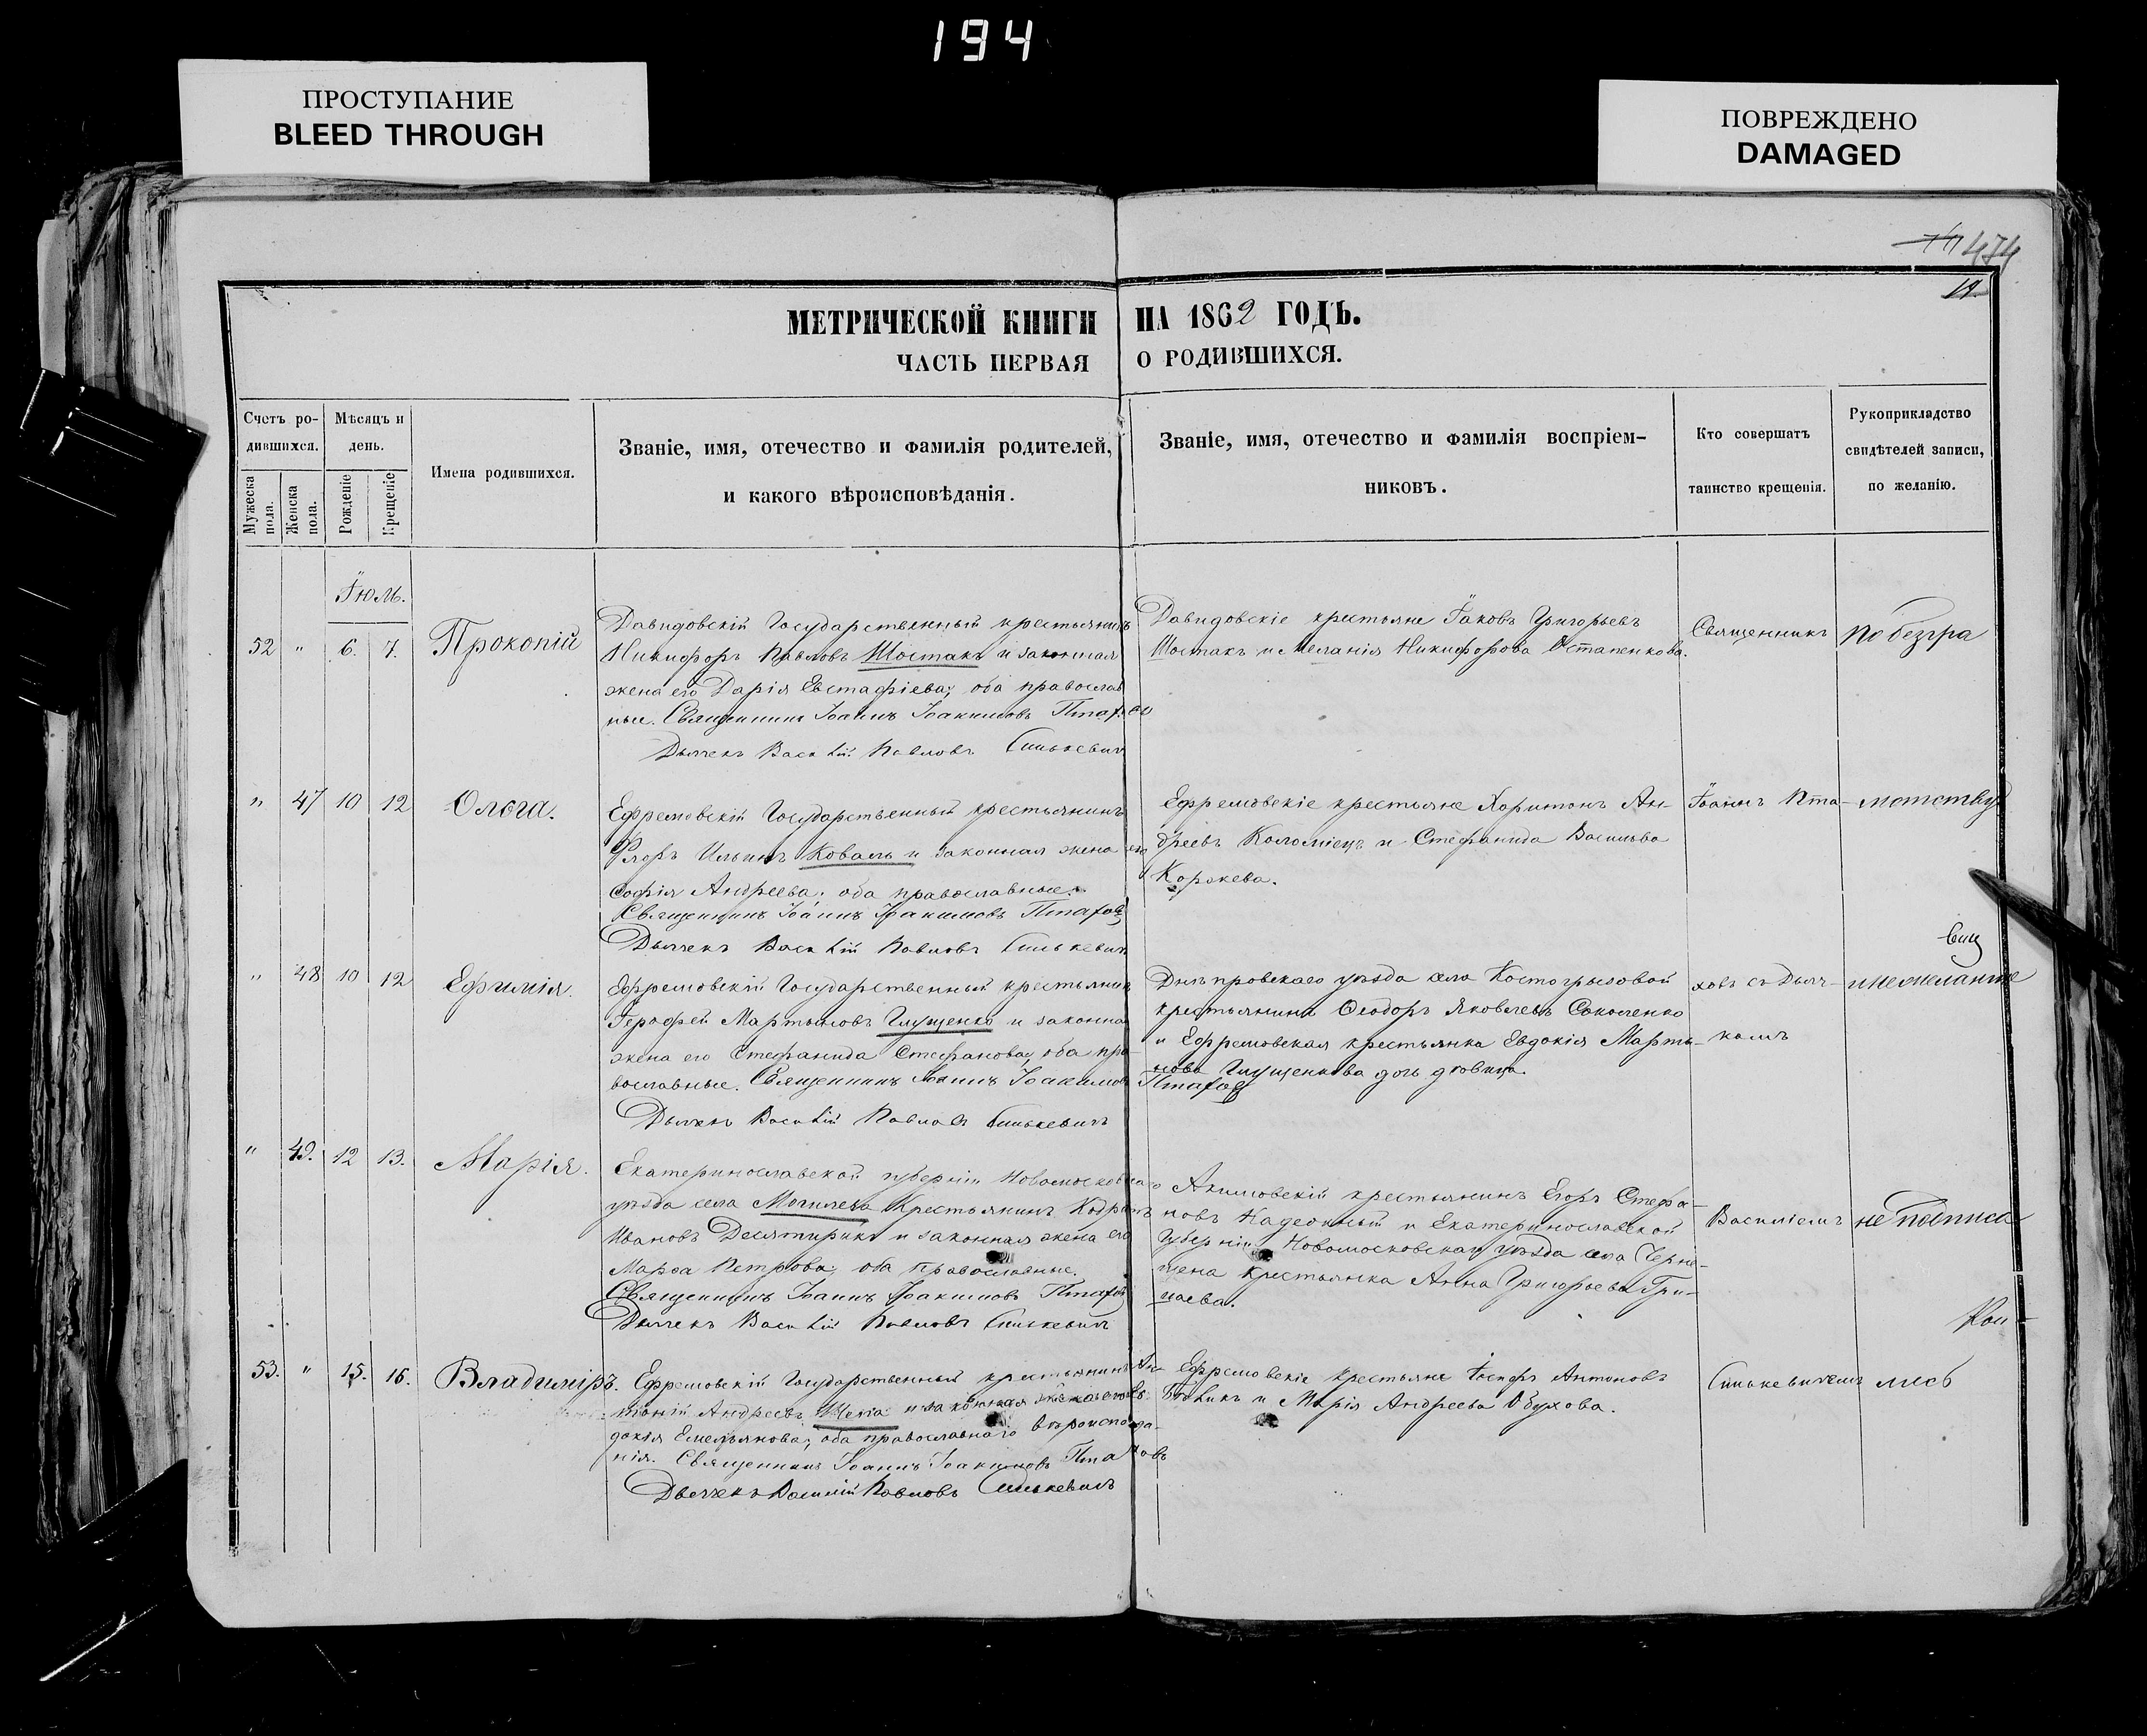 194
ПРОСТУПАНИЕ
BLEED THROUGH
ПОВРЕЖДЕНО
DAMAGED
474
МЕТРИЧЕСКОЙ КНИГИ НА 1862 ГОДЪ.
ЧАСТЬ ПЕРВАЯ О РОДИВШИХСЯ.
Счетъ ро-
дившихся.
Мужеска пола.
Женска пола.
Мѣсяцъ и
день.
Рожденіе
Крещеніе
Имена родившихся.
Званіе, имя, отечество и фамилія родителей,
и какого вѣроисповѣданія.
Званіе, имя, отечество и фамилія воспріем-
никовъ.
Кто совершатъ
таинство крещенія.
Рукоприкладство
свидѣтелей записи,
по желанію.
Іюль.
52 " 6. 7. Прокопій
Давидовскій Государственный крестьянинъ
Никифоръ Павловъ Шостакъ и законная
жена его Дарія Евстафіева; оба православ
ные. Священникъ Іоаннъ Іоакимовъ Птахов
Дьячекъ Василій Павловъ Синькевичъ
Давидовскіе крестьяне Іаковъ Григорьевъ
Шостакъ и Меланія Никифорова Остапенкова.
Священникъ
по безгра
" 47 10 12 Ольга.
Ефремовскій Государственный крестьянинъ
Флоръ Ильинъ Коваль и законная жена его
Софія Андреева; оба православные.
Священникъ Іоаннъ Іоакимовъ Птахов
Дьячекъ Василій Павловъ Синькевичъ
Ефремовскіе крестьяне Харитонъ Ан-
дреевъ Коломіецъ и Стефанида Васильева
Коржева.
Іоаннъ Пта-
мотству
" 48 10 12 Ефимія.
Ефремовскій Государственный крестьянин
Герофей Мартыновъ Глущенко и законна
жена его Стефанида Стефанова; оба пра
вославные. Священникъ Іоаннъ Іоакимовъ Птахов
Дьячекъ Василій Павловъ Синькевичъ
Днѣпровскаго уѣзда села Костогрызовой
крестьянинъ Ѳеодоръ Яковлевъ Соколенко
и Ефремовская крестьянка Евдокія Марты-
нова Глущенкова дочь дѣвица.
ховъ съ Дьяч-
комъ
" 49. 12 13. Марія.
Екатеринославской губерніи Новомосковскаго
уѣзда села Могилева Крестьянинъ
Ивановъ Десятирикъ и законная жена его
Марѳа Петрова; оба православные.
Священникъ Іоаннъ Іоакимовъ Птахов
Дьячекъ Василій Павловъ Синькевичъ
Акимовскій крестьянинъ Егоръ Стефа-
новъ и Екатеринославской
Губерніи Новомосковскаго уѣзда села Черне-
чена крестьянка Анна Григорьева Гри-
цаева.
Василіемъ
не подписа
53. " 15. 16. Владиміръ.
Ефремовскій Государственный крестьянинъ Ан-
Андреевъ и законная жена его Ев
докія Емельянова; оба православнаго вѣроисповѣда-
нія. Священникъ Іоаннъ Іоакимовъ Птаховъ
Дьячекъ Василій Павловъ Синькевичъ
Ефремовскіе крестьяне Іосифъ Антоновъ
и Марія Андреева Обухова.
Синькевичемъ
лись